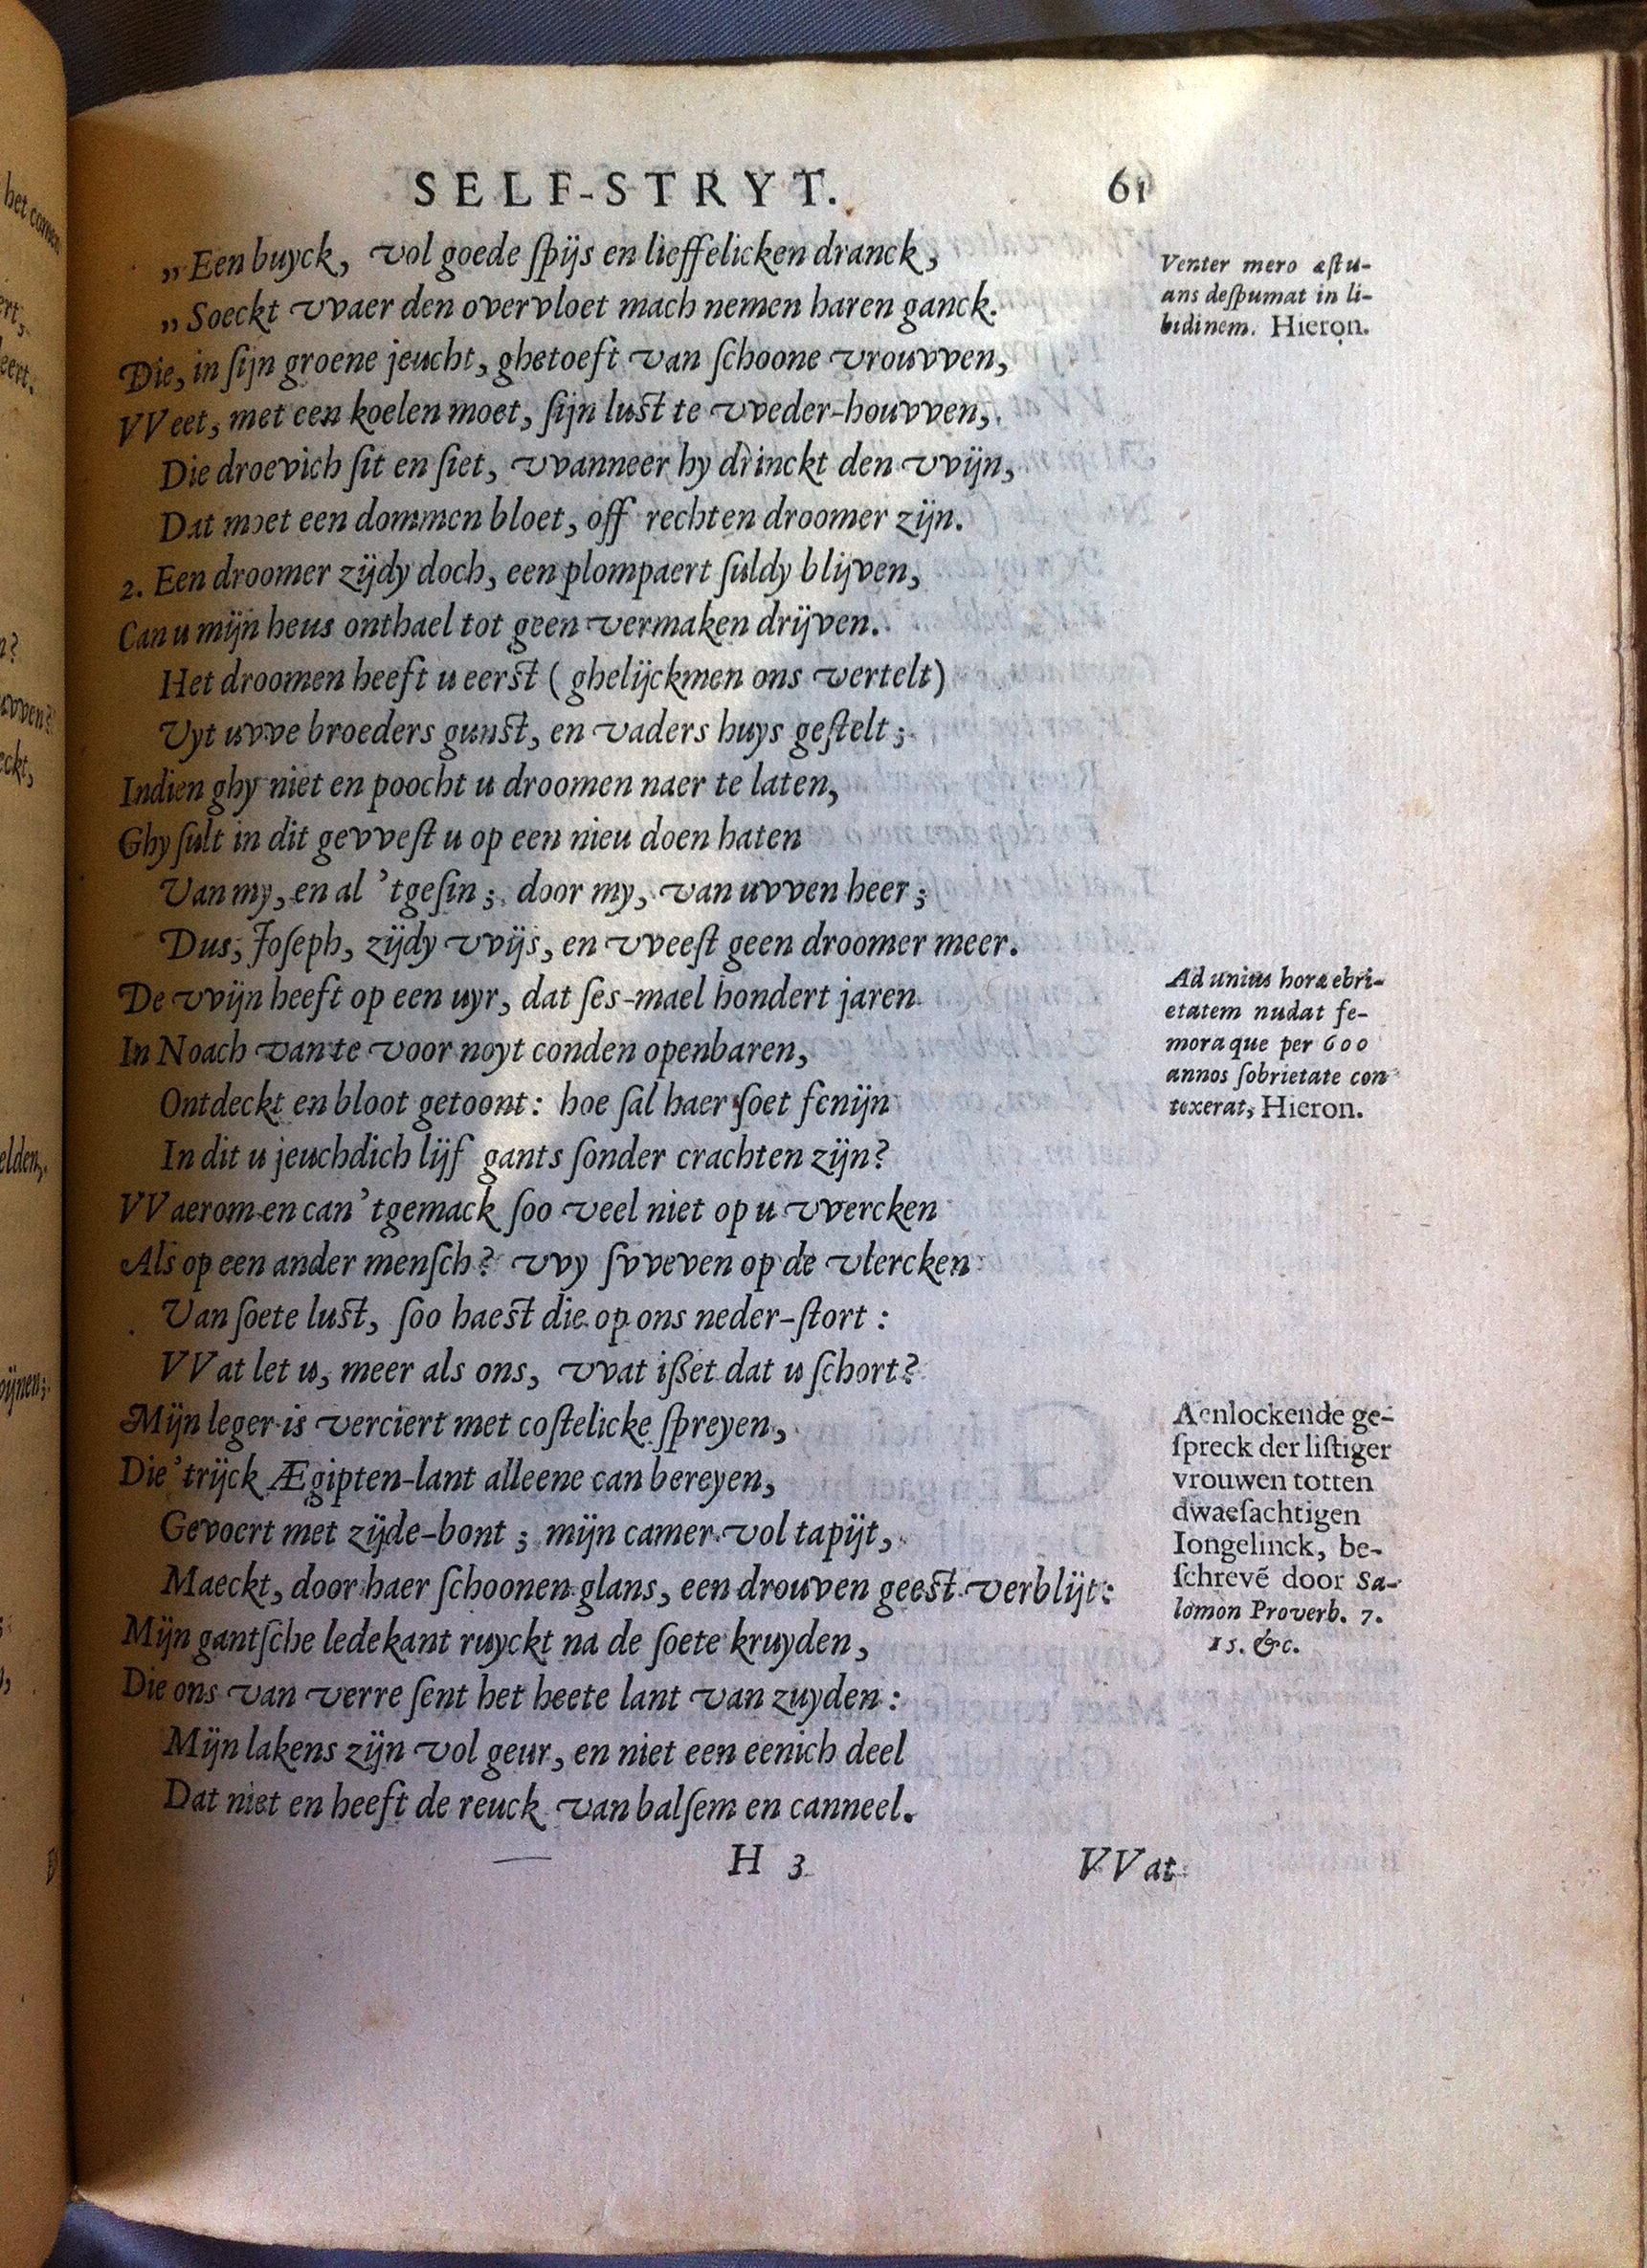 SELF-STRYT. 61
„Een buyck, vol goede ſpijs en lieffelicken dranck,
„Soeckt vvaer den overvloet mach nemen haren ganck.
Die, in ſijn groene jeucht, ghetoeft van ſchoone vrouvven,
VVeet, met een koelen moet, ſijn luſt te vveder-houvven,
Die droevich ſit en ſiet, vvanneer hy drinckt den vvijn,
Dat moet een dommen bloet, off rechten droomer zijn.
2. Een droomer zijdy doch, een plompaert ſuldy blijven,
Can u mijn heus onthael tot geen vermaken drijven.
Het droomen heeft u eerſt (ghelijckmen ons vertelt)
Uyt uvve broeders gunſt, en vaders huys geſtelt;
Indien ghy niet en poocht u droomen naer te laten,
Ghy ſult in dit gevveſt u op een nieu doen haten
Van my, en al 'tgeſin; door my, van uvven heer;
Dus, Joſeph, zijdy vvijs, en vveeſt geen droomer meer.
De vvijn heeft op een uyr, dat ſes-mael hondert jaren
In Noach van te voor noyt conden openbaren,
Ontdeckt en bloot getoont: hoe ſal haer ſoet fenijn
In dit u jeuchdich lijf gants ſonder crachten zijn?
VVaerom en can 'tgemack ſoo veel niet op u vvercken
Als op een ander menſch? vvy ſvveven op de vlercken
Van ſoete luſt, ſoo haeſt die op ons neder-ſtort:
VVat let u, meer als ons, vvat iſſet dat u ſchort?
Mijn leger is verciert met coſtelicke ſpreyen,
Die 'trijck Ægipten-lant alleene can bereyen,
Gevoert met zijde-bont; mijn camer vol tapijt,
Maeckt, door haer ſchoonen glans, een drouven geeſt verblijt:
Mijn gantſche ledekant ruyckt na de ſoete kruyden,
Die ons van verre ſent het heete lant van zuyden:
Mijn lakens zijn vol geur, en niet een eenich deel
Dat niet en heeft de reuck van balſem en canneel.
H 3 VVat
Venter mero æſtu-
ans deſpumat in li-
bidinem. Hieron.
Ad unius horæ ebri-
etatem nudat fe-
mora que per 600
annos ſobrietate con
texerat, Hieron.
Aenlockende ge-
ſpreck der liſtiger
vrouwen totten
dwaeſachtigen
Iongelinck, be-
ſchrevẽ door Sa-
lomon Proverb. 7.
15. &c.
het comen
ert,
eert.
n?
uvven?
eckt,
elden,